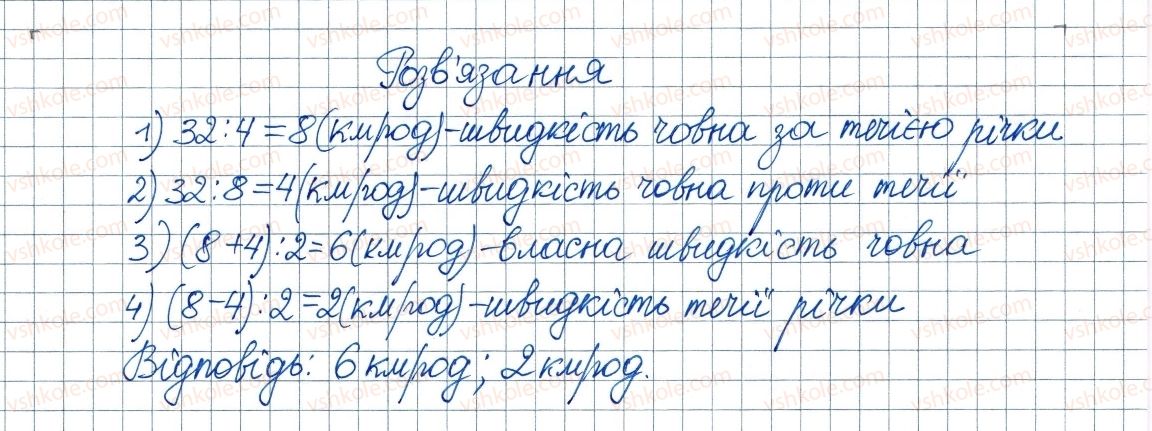 Розв'язання
1) 32:4=8(км/год)-швидкість човна за течією річки
2) 32:8=4(км/год)-швидкість човна проти течії
3) (8+4):2=6(км/год)-власна швидкість човна
4) (8-4):2=2(км/год)-швидкість течії річки
Відповідь: 6 км/год; 2 км/год.